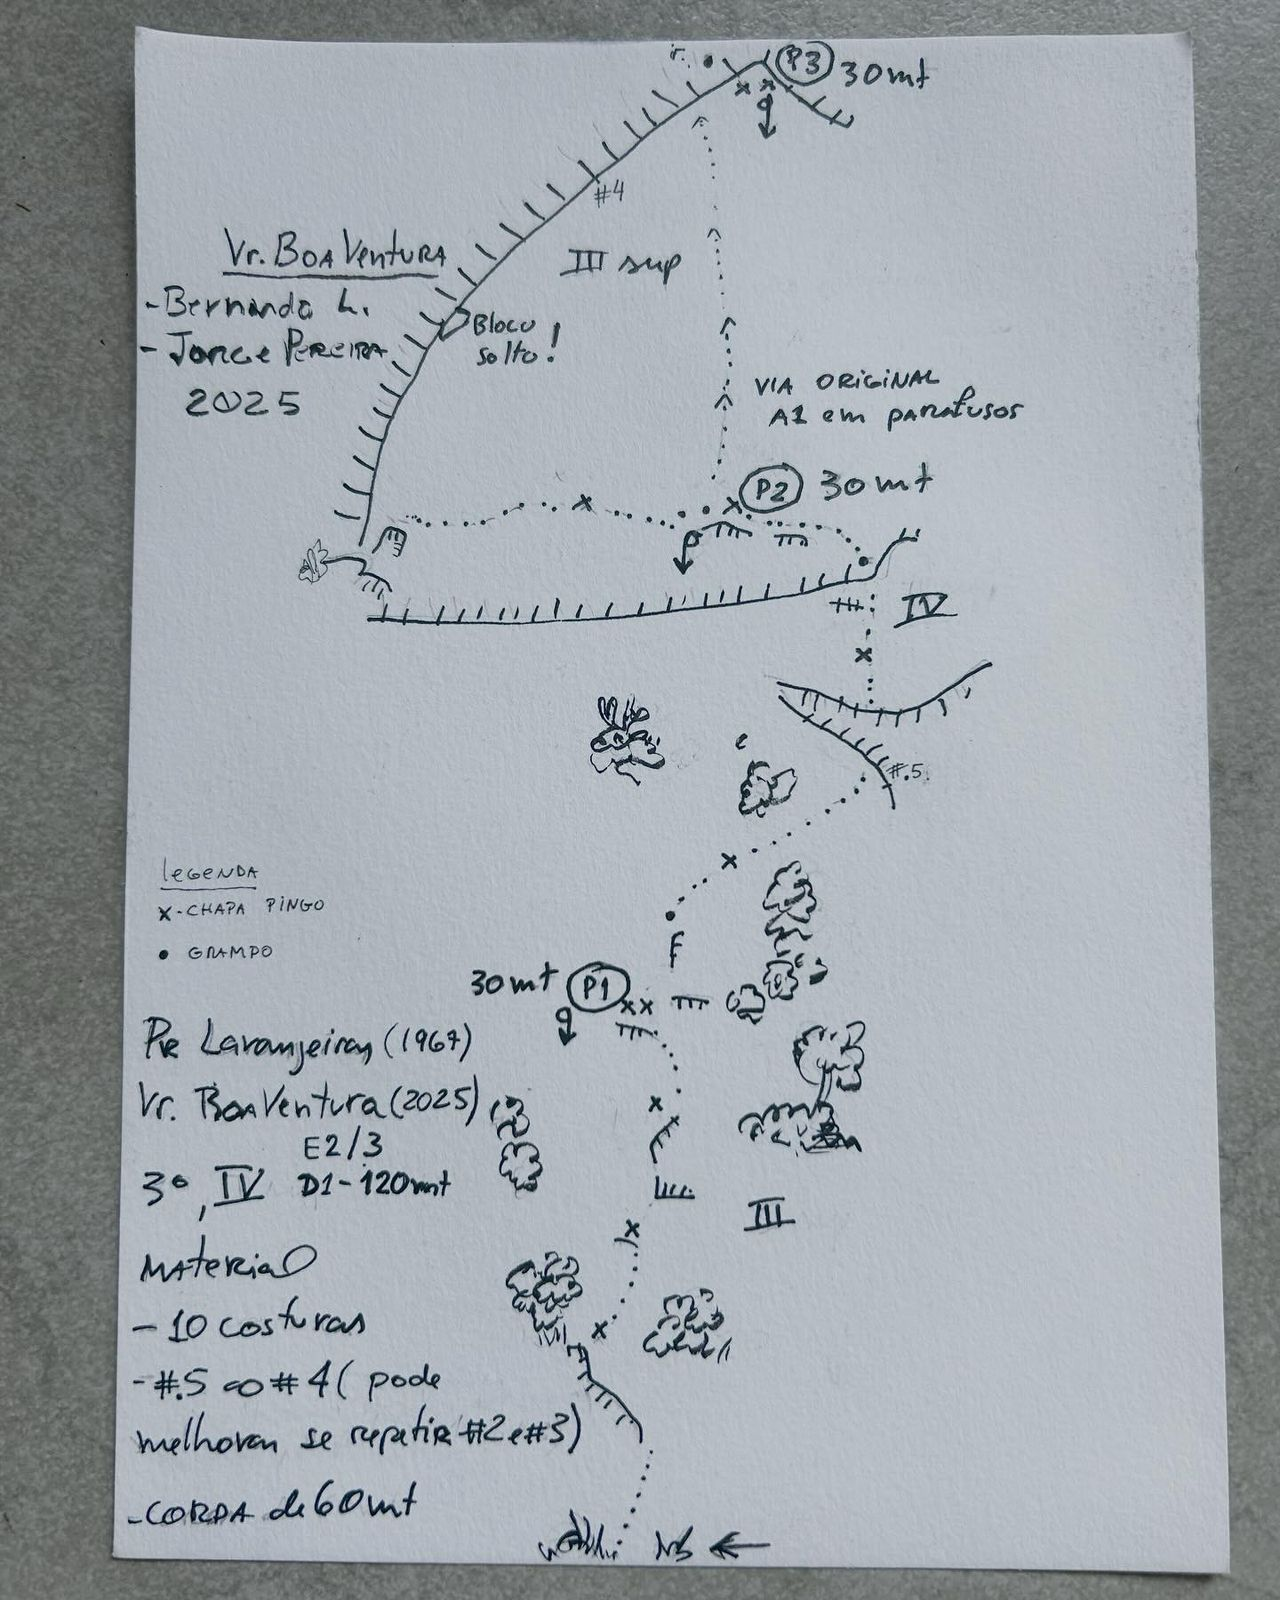 P3 30mt
#4
Vr. BOA VENTURA
- Bernardo L.
- Jorge PEREIRA
2025
III sup
Bloco
solto!
VIA ORIGINAL
A1 em parafusos
P2 30mt
IV
#.5
LEGENDA
x - CHAPA PINGO
• GRAMPO
F
30mt P1
Laranjeiras (1967)
Vr. BOA Ventura (2025)
E2/3
3º, IV D1 - 120mt
III
Material
- 10 costuras
- #.5 ao #4 ( pode
melhorar se repetir #2 e #3)
- CORDA de 60mt